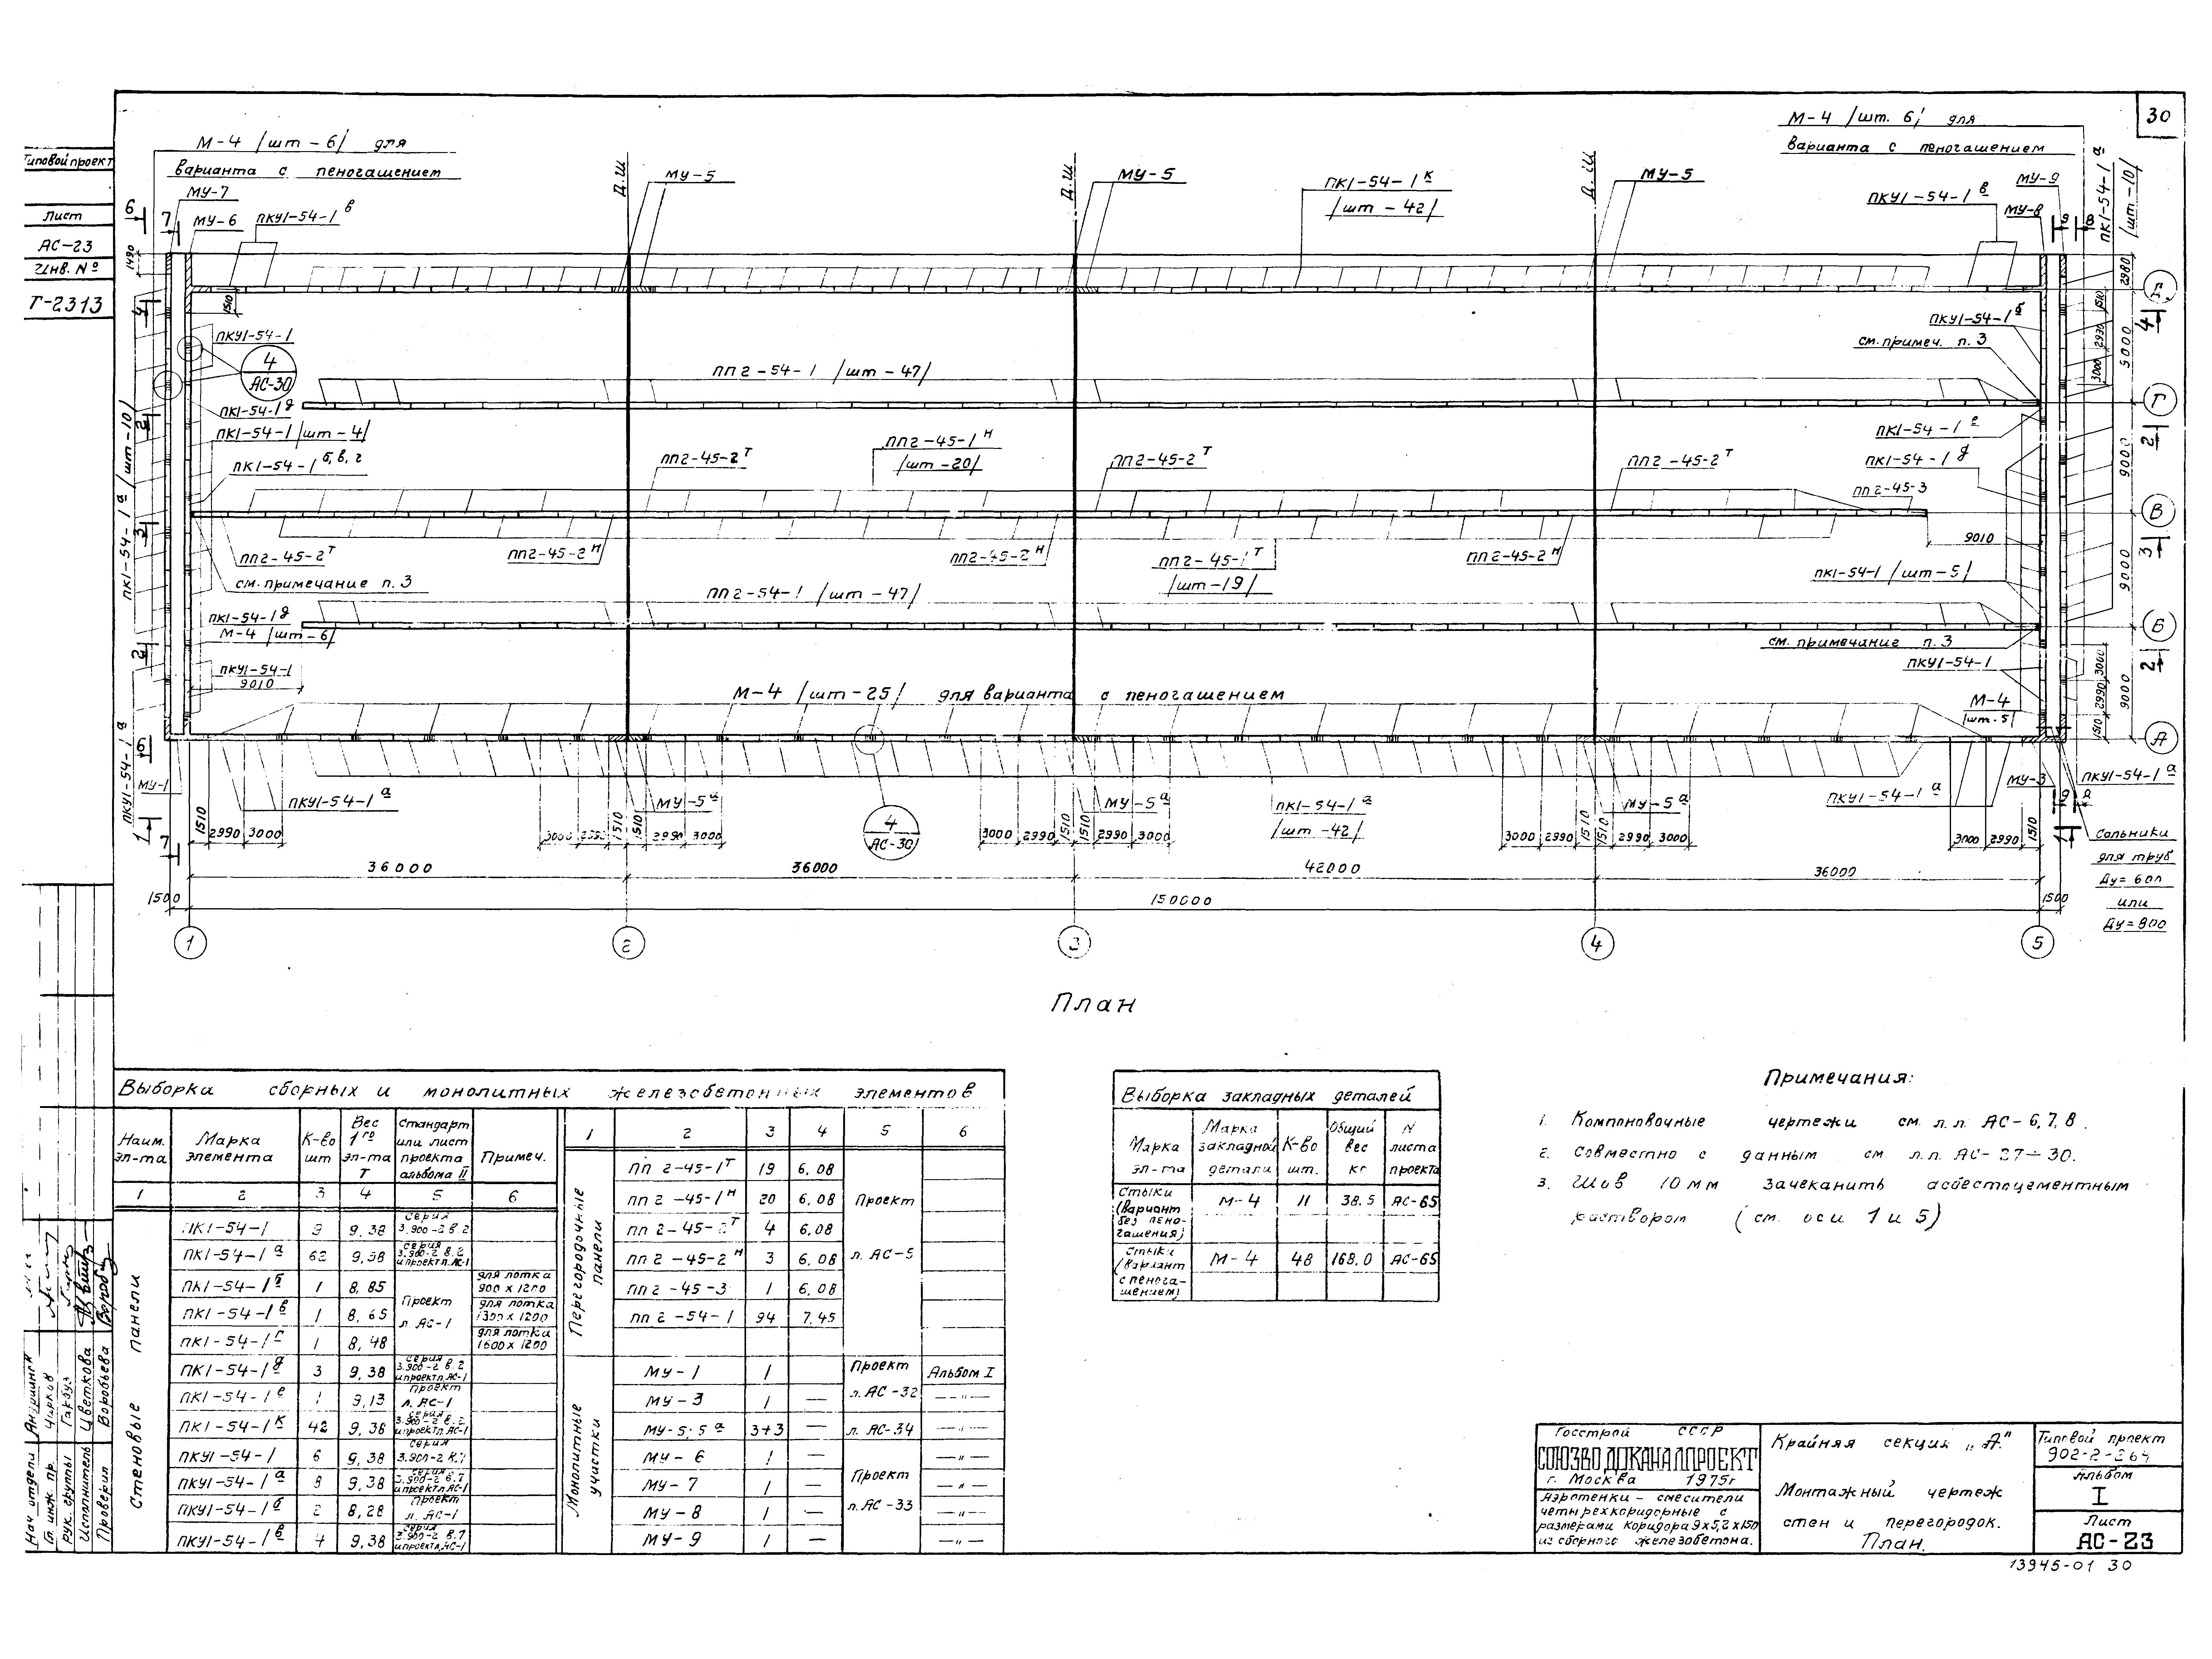 30
Типовой проект
Лист
АС-23
Инв. №
Т-2313
М-4 /шт-6/ для
варианта с пеногашением
МУ-7
МУ-6
ПКУ1-54-1 в
6
7
1490
Д.Ш
МУ-5
Д.Ш
МУ-5
ПК1-54-1 к
/шт-42/
Д.Ш
МУ-5
М-4 /шт. 6/ для
варианта с пеногашением
ПКУ1-54-1 в
МУ-9
МУ-8
9
8
ПК1-54-1 а
/шт-10/
1510
4
ПКУ1-54-1
4
АС-30
ПП2-54-1 /шт-47/
ПКУ1-54-1 б
см. примеч. п. 3
2980
1510
2990
3000
9000
4
Г
ПК1-54-1 д
ПК1-54-1 /шт-4/
ПК1-54-1 б, в, г
2
ПК1-54-1 а /шт-10/
ПП2-45-2 т
ПП2-45-1 н
/шт-20/
ПП2-45-2 т
ПП2-45-2 т
ПК1-54-1 е
ПК1-54-1 д
ПП2-45-3
2
9000
В
3
ПП2-45-2 т
см. примечание п. 3
ПП2-45-2 н
ПП2-45-2 н
ПП2-45-1 т
/шт-19/
ПП2-45-2 н
9010
3
ПК1-54-1 /шт-5/
9000
ПП2-54-1 /шт-47/
Б
ПК1-54-1 д
М-4 /шт-6/
2
ПКУ1-54-1
9010
см. примечание п. 3
ПКУ1-54-1
2
М-4 /шт-25/ для варианта с пеногашением
М-4
/шт-5/
3000
2990
1510
9000
А
6
ПКУ1-54-1 а
МУ-1
1
7
ПКУ1-54-1 а
МУ-5 а
4
АС-30
МУ-5 а
ПК1-54-1 а
/шт-42/
МУ-5 а
ПКУ1-54-1 а
МУ-3
ПКУ1-54-1 а
1510 2990 3000
3000 2990 1510 1510 2990 3000
3000 2990 1510 1510 2990 3000
3000 2990 1510 1510 2990 3000
3000 2990 1510
1
Сальники
для труб
Ду=600
или
Ду=800
36000 36000 42000 36000
1500 150000 1500
1 2 3 4 5
План
Выборка сборных и монолитных железобетонных элементов
Наим. эл-та Марка элемента К-во шт Вес 1го эл-та Т Стандарт или лист проекта альбома II Примеч.
1 2 3 4 5 6
Стеновые панели
ПК1-54-1 9 9,38 серия 3.900-2 в.2
ПК1-54-1 а 62 9,38 серия 3.900-2 в.2 и проект л. АС-1
ПК1-54-1 б 1 8,85 для лотка 900 х 1200
ПК1-54-1 в 1 8,65 Проект л АС-1 для лотка 1300 х 1200
ПК1-54-1 г 1 8,48 для лотка 1600 х 1200
ПК1-54-1 д 3 9,38 серия 3.900-2 в.2 и проект л. АС-1
ПК1-54-1 е 1 9,13 проект л. АС-1
ПК1-54-1 к 42 9,38 серия 3.900-2 в.2 и проект л. АС-1
ПКУ1-54-1 6 9,38 серия 3.900-2 в.7
ПКУ1-54-1 а 8 9,38 серия 3.900-2 в.7 и проект л. АС-1
ПКУ1-54-1 б 2 8,28 Проект л. АС-1
ПКУ1-54-1 в 4 9,38 серия 3.900-2 в.7 и проект л. АС-1
1 2 3 4 5 6
Перегородочные панели
ПП 2-45-1 т 19 6,08
ПП 2-45-1 н 20 6,08 Проект
ПП 2-45-2 т 4 6,08
ПП 2-45-2 н 3 6,08 л. АС-5
ПП 2-45-3 1 6,08
ПП 2-54-1 94 7,45
Монолитные участки
МУ-1 1 Проект Альбом I
МУ-3 1 — л. АС-32 —"—
МУ-5; 5 а 3+3 — л. АС-34 —"—
МУ-6 1 —"—
МУ-7 1 — Проект —"—
МУ-8 1 — л. АС-33 —"—
МУ-9 1 — —"—
Выборка закладных деталей
Марка эл-та Марка закладной детали К-во шт. Общий вес кг N листа проекта
Стыки (вариант без пено-гашения) М-4 11 38.5 АС-65
Стыки (вариант с пенога-шением) М-4 48 168.0 АС-65
Примечания:
1. Компоновочные чертежи см. л.л. АС-6,7,8.
2. Совместно с данным см л.л. АС-27÷30.
3. Шов 10мм зачеканить асбестоцементным
раствором (см. оси 1 и 5)
Госстрой СССР
СОЮЗВОДОКАНАЛПРОЕКТ
г. Москва 1975г
Аэротенки-смесители
четырехкоридорные с
размерами коридора 9х5,2х150
из сборного железобетона.
Крайняя секция „А"
Монтажный чертеж
стен и перегородок.
План.
Типовой проект
902-2-264
Альбом
I
Лист
АС-23
13945-01 30
Нач отдела
Гл. инж. пр. Чирков
Рук. группы Гарбуз
Исполнитель Цветкова
Проверил Воробьева